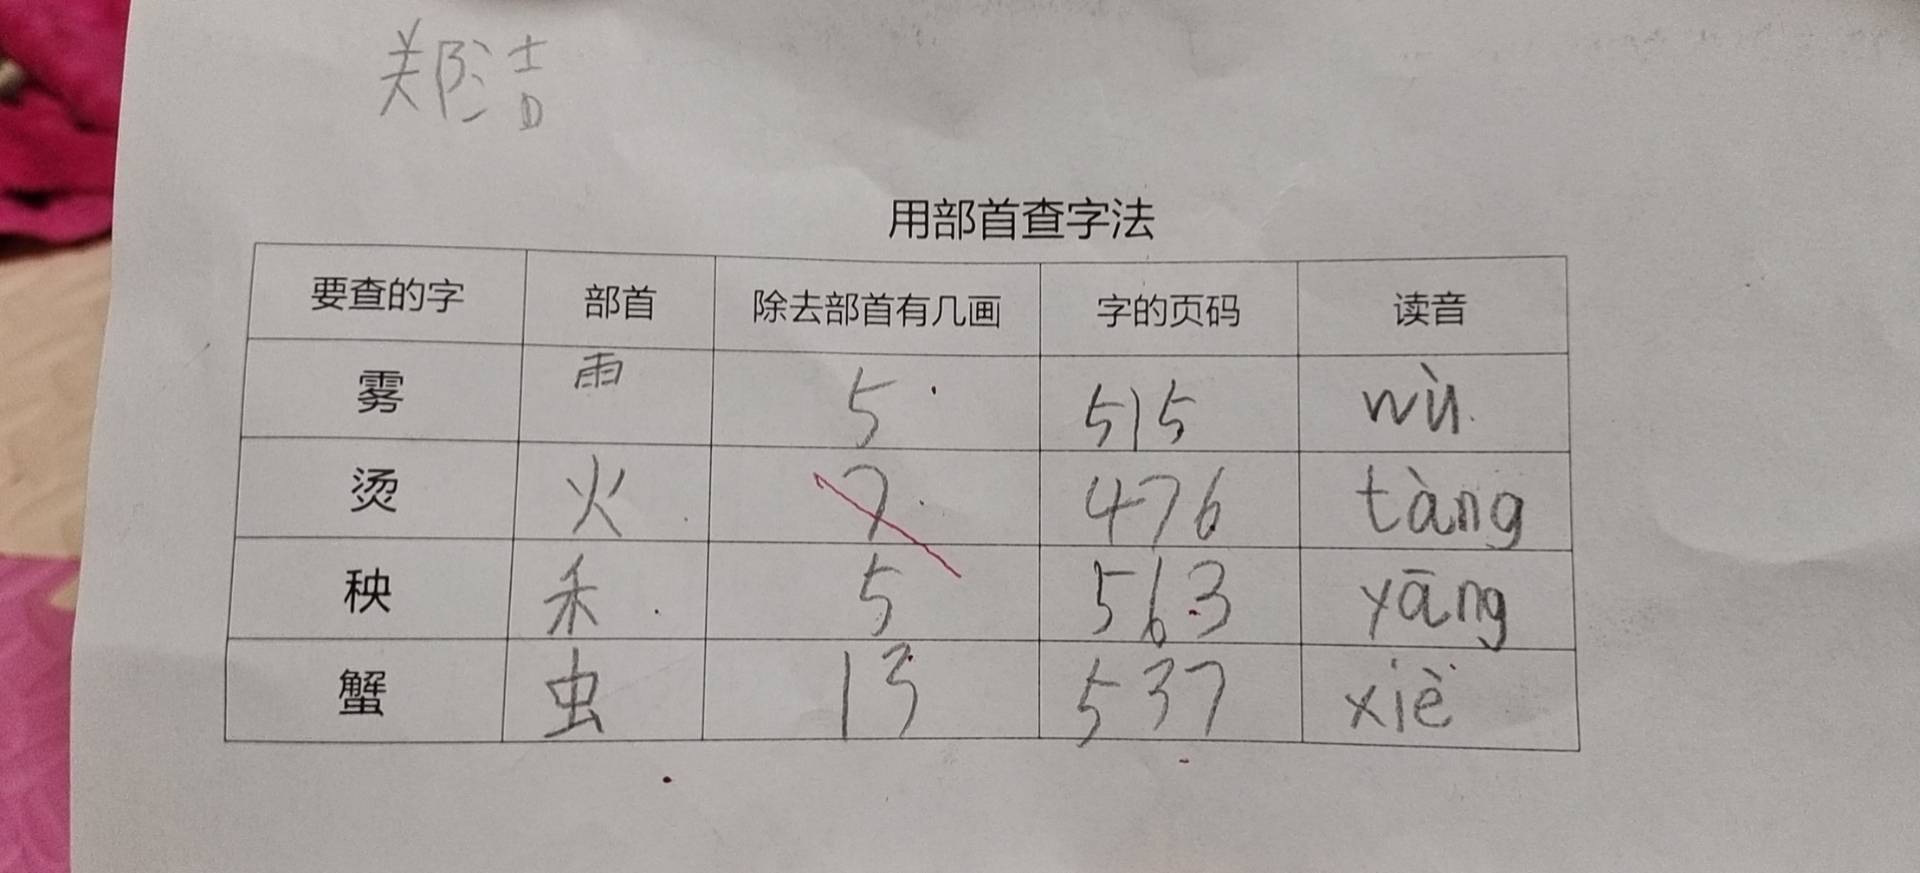 郑洁
用部首查字法
要查的字 部首 除去部首有几画 字的页码 读音
雾 雨 5 515 wù
烫 火 7 476 tàng
秧 禾 5 563 yāng
蟹 虫 13 537 xiè